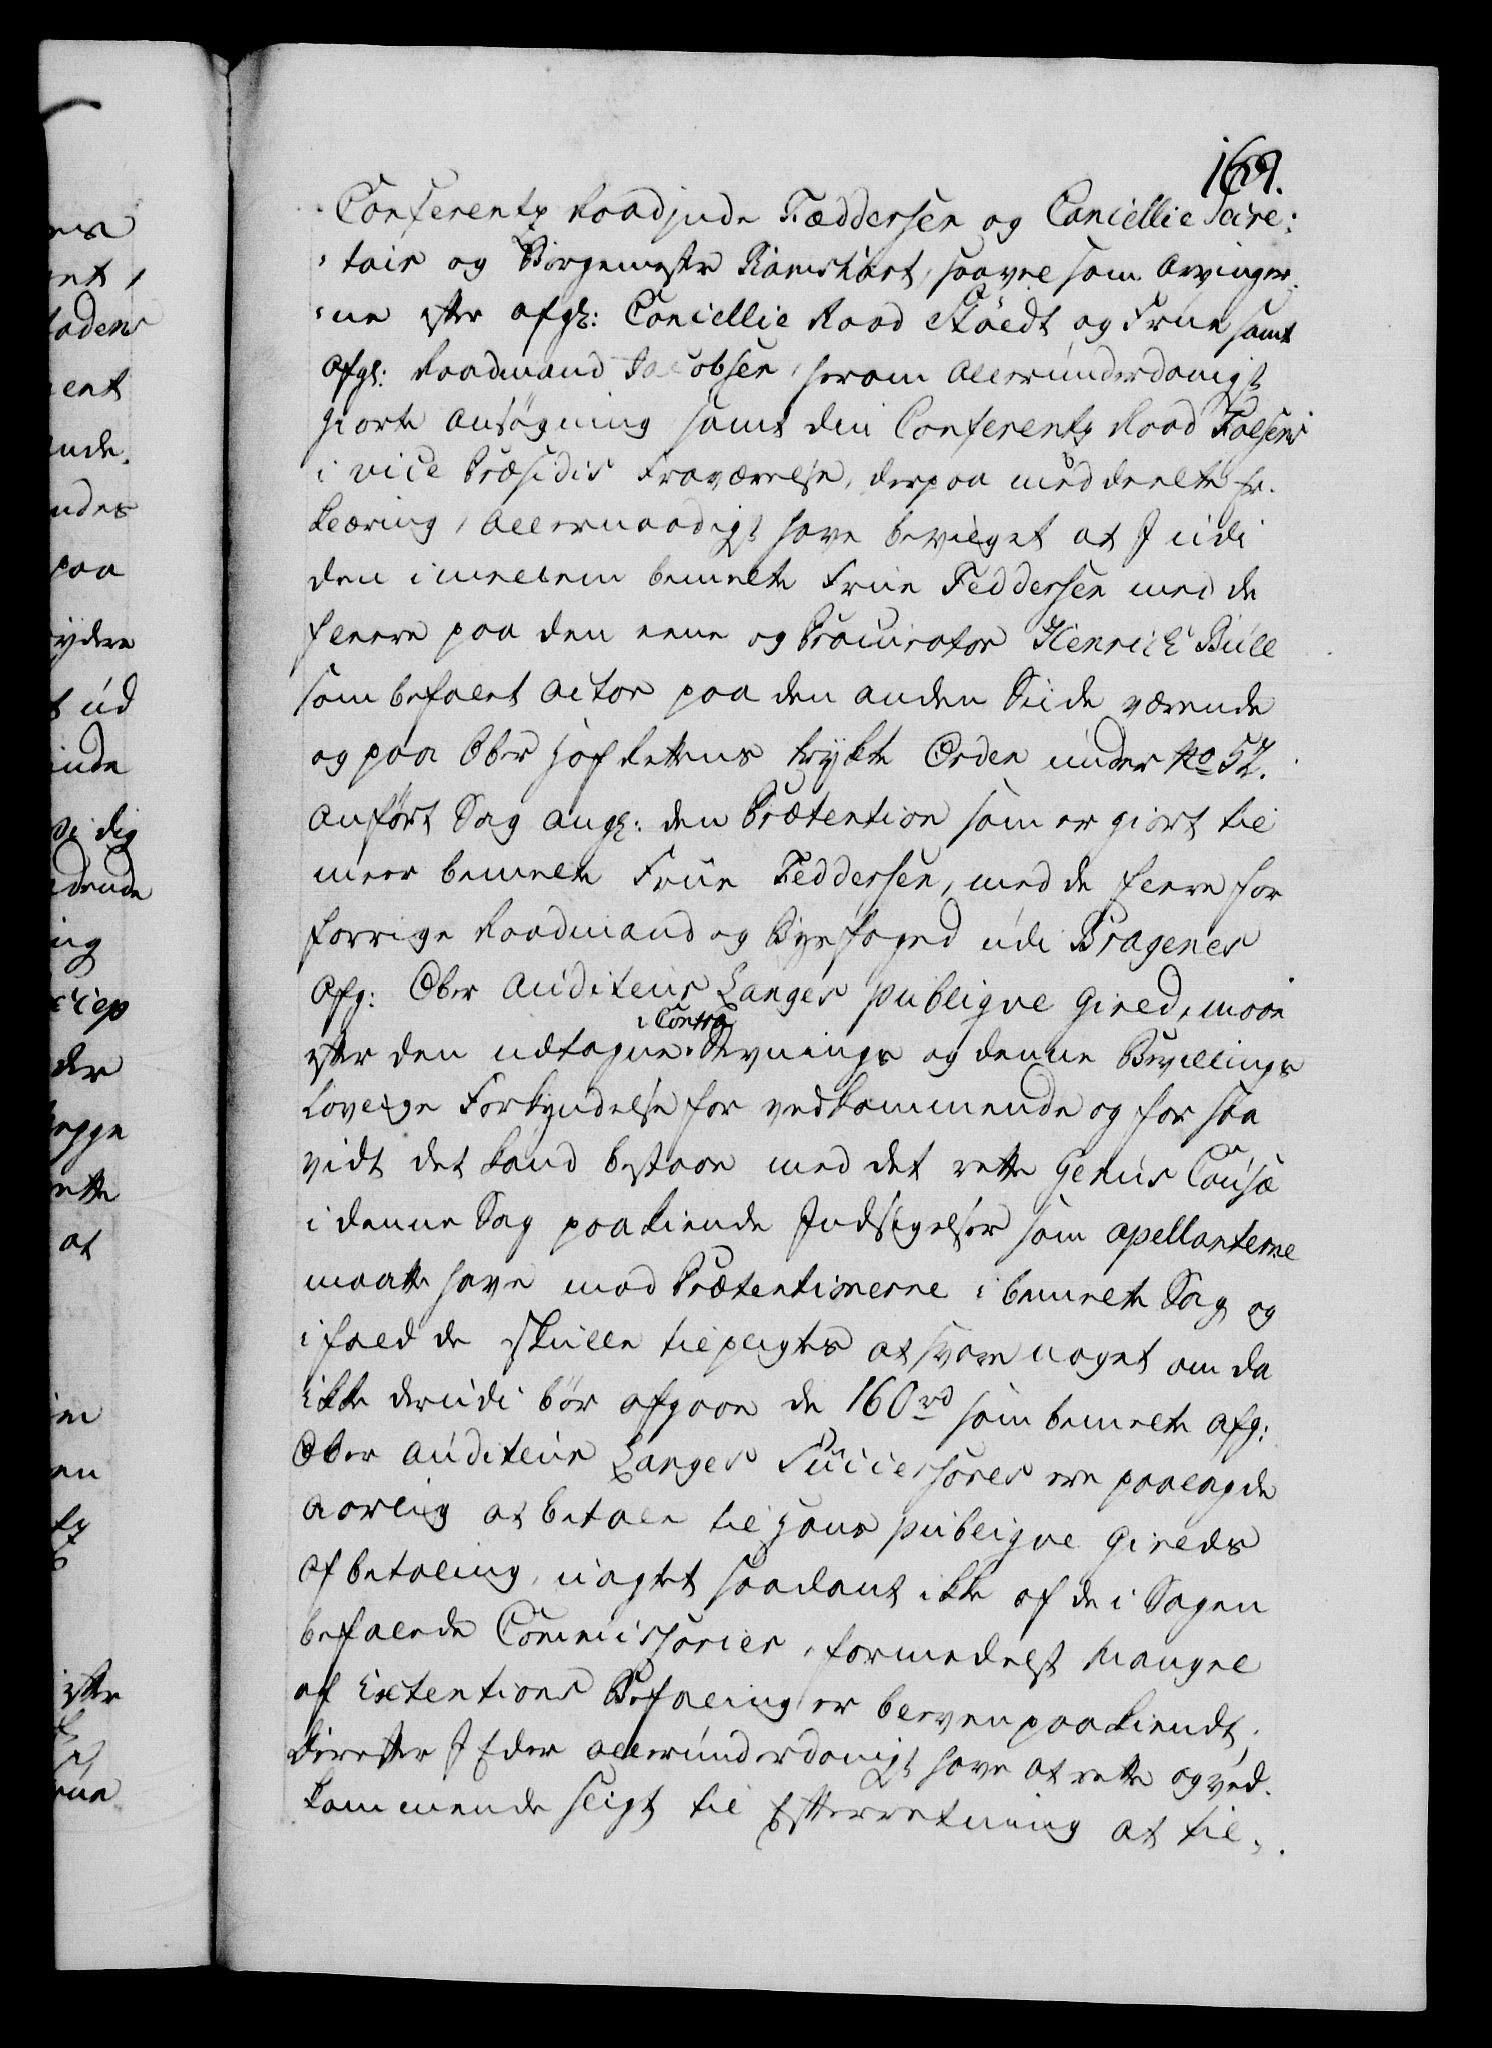 169.
Conferentz Raadinde Fæddersen og Cancellie Secre:
:tair og Borgemester Ramshart, saavel som Arvinger:
:ne efter afg: Cancellie Raad Stöedt og Frue samt
afg: Raadmand Jacobsen, herom allerunderdanigst
giorte ansögning samt din Conferentz Raad Falsens
i vice Præsidis Fraværelse, derpaa meddeelte Er:
klæring, allernaadigst have bevilget at I udi
den imellem bemelte Frue Feddersen med de
fleere paa den eene og Procurator Henrich Bull
som befalet Actor paa den anden Siide værende
og paa Ober Hof Rettens trykte Orden under No 52.
anfört Sag angl: den Prætention som er giort til
meer bemelte Frue Feddersen, med de fleere for
forrige Raadmand og Byefoged udi Bragenes
Afg: Ober Auditeur Langes publiqve Gield, maae
efter den udtagne Contra Stevnings og denne Bevillings
Lovlige Forkyndelse for vedkommende og for saa
vidt det kand bestaae med det rette Genus Causæ
i denne Sag paakiende Indsigelser som apellanterne
maatte have mod Prætentionerne i bemelte Sag og
ifald de skulle tilpligtes at svare noget om da
ikke derudi bör afgaae de 160 rd som bemelte afg:
Ober Auditeur Langes Successores ere paalagde
aarlig at betale til hans publiqve Gields
afbetaling, uagtet saadant ikke af de i Sagen
befalede Commissarier, formedelst Mangel
af Extentions Befaling er bleven paakiendt,
Derefter I Eder allerunderdanigst have at rette og ved:
kommende sligt til Efterretning at til: